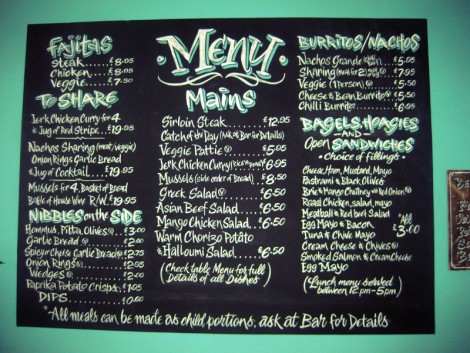 Fajitas
Steak £8.95
Chicken £8.95
Veggie £7.50
To Share
Jerk Chicken Curry for 4
& Jug of Red Stripe £19.95
Nachos Sharing (meat/veggie)
Onion Rings Garlic Bread
& Jug of Cocktail £19.95
Mussels for 4, Basket of Bread
Bottle of House Wine R/W £19.95
Nibbles on the Side
Hommus, Pitta, Olives Ⓥ £3.00
Garlic Bread Ⓥ £2.00
Spicy or Cheese Garlic Bread £2.75
Onion Rings Ⓥ
Wedges Ⓥ £2.00
Paprika Potato Crisps £1.50
Dips £0.50
Menu
Mains
Sirloin Steak £12.95
Catch of the Day (Ask at Bar for Details)
Veggie Pattie Ⓥ
Jerk Chicken Curry (Rice & Peas)
Mussels (side order of Bread)
Greek Salad Ⓥ
Asian Beef Salad
Mango Chicken Salad
Warm Chorizo Potato
& Halloumi Salad
(Check table Menu for full
Details of all Dishes)
Burritos/Nachos
Nachos Grande £5.95
Sharing
Veggie (1 Person) Ⓥ
Cheese & Bean Burrito Ⓥ
Chilli Burrito
Bagels, Hoagies
-and-
Open Sandwiches
• choice of fillings •
Cheese, Ham, Mustard, Mayo
Pastrami & Black Olives
Brie & Mango Chutney with Red Onion Ⓥ
Road Chicken, salad, mayo
Meatball & Red beef Salad
Egg Mayo & Bacon
Tuna & Chive Mayo
Cream Cheese & Chives Ⓥ
Smoked Salmon & Cream Cheese
Egg Mayo
All £3.00
(Lunch menu served
between 12pm-5pm)
*All meals can be made as child portions, ask at Bar for Details